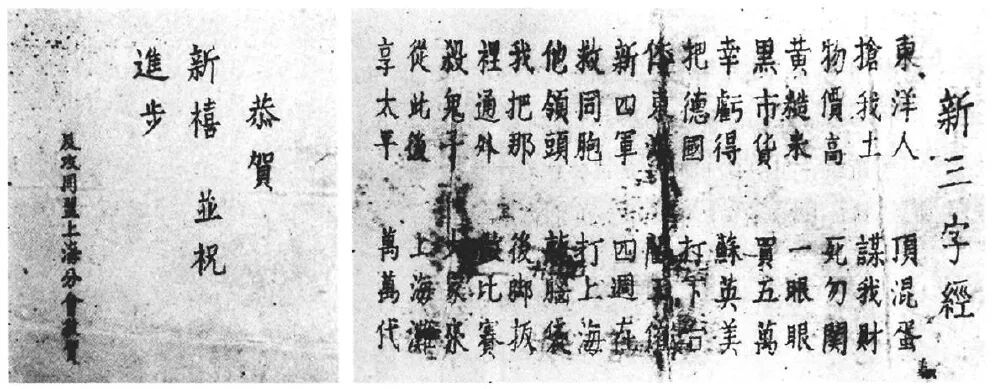 恭賀
新禧 並祝
進步
同盟上海分會敬賀
新三字經
東洋人 頂混蛋
搶我土 謀我財
物價高 死勿關
黃糙米 一眼眼
黑市貨 買五萬
幸虧得 蘇英美
把德國 打下台
東洋
新四軍 四週在
救同胞 打上海
他領頭
我把那 後脚扳
裡通外 比賽
殺鬼子 大家來
從此後 上海灘
享太平 萬萬代